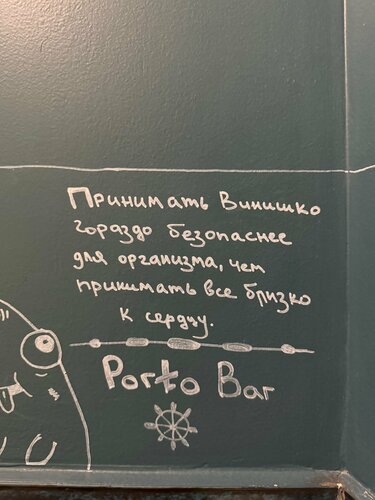 Принимать Винишко
гораздо безопаснее
для организма, чем
принимать все близко
к сердцу.
Porto Bar